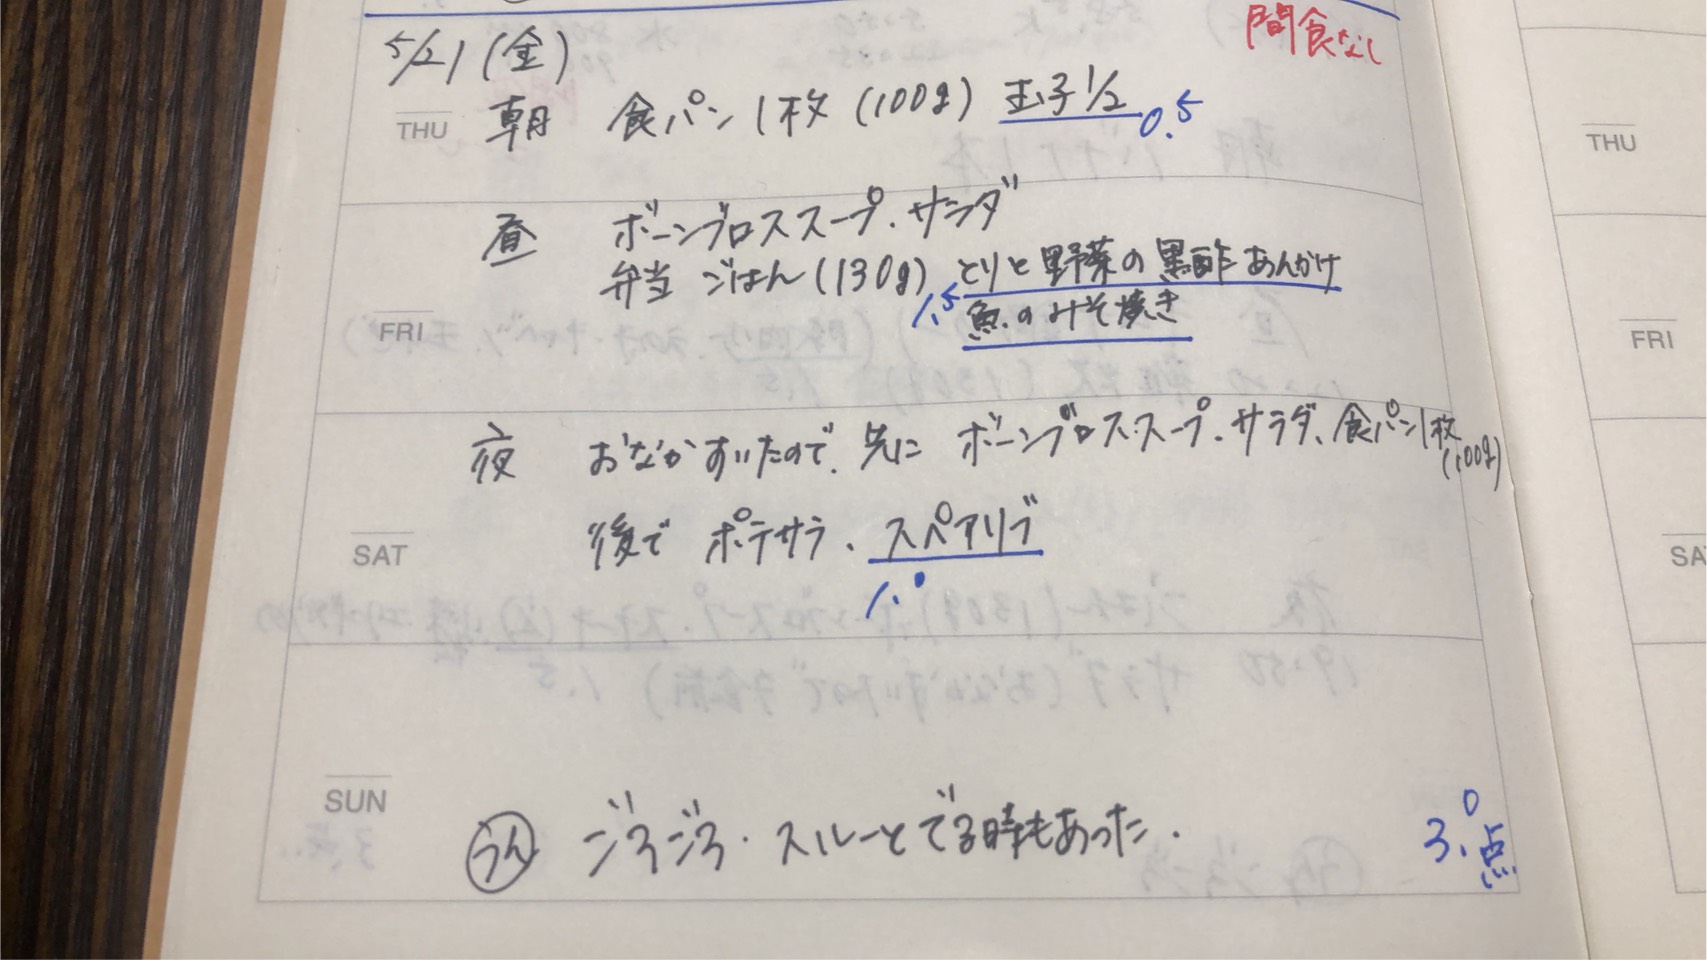 間食なし
5/21(金)
THU
朝 食パン1枚(100g)玉子1/2 0.5
昼 ボーンブロススープ・サラダ
弁当 ごはん(130g) とりと野菜の黒酢あんかけ
1.5 魚のみそ焼き
FRI
夜 おなかすいたので、先に ボーンブロススープ・サラダ、食パン1枚
(100g)
後で ポテサラ、スペアリブ
1.0
SAT
SUN
うん ごろごろ・スルーとでる時もあった.
3.0点
THU
FRI
SA